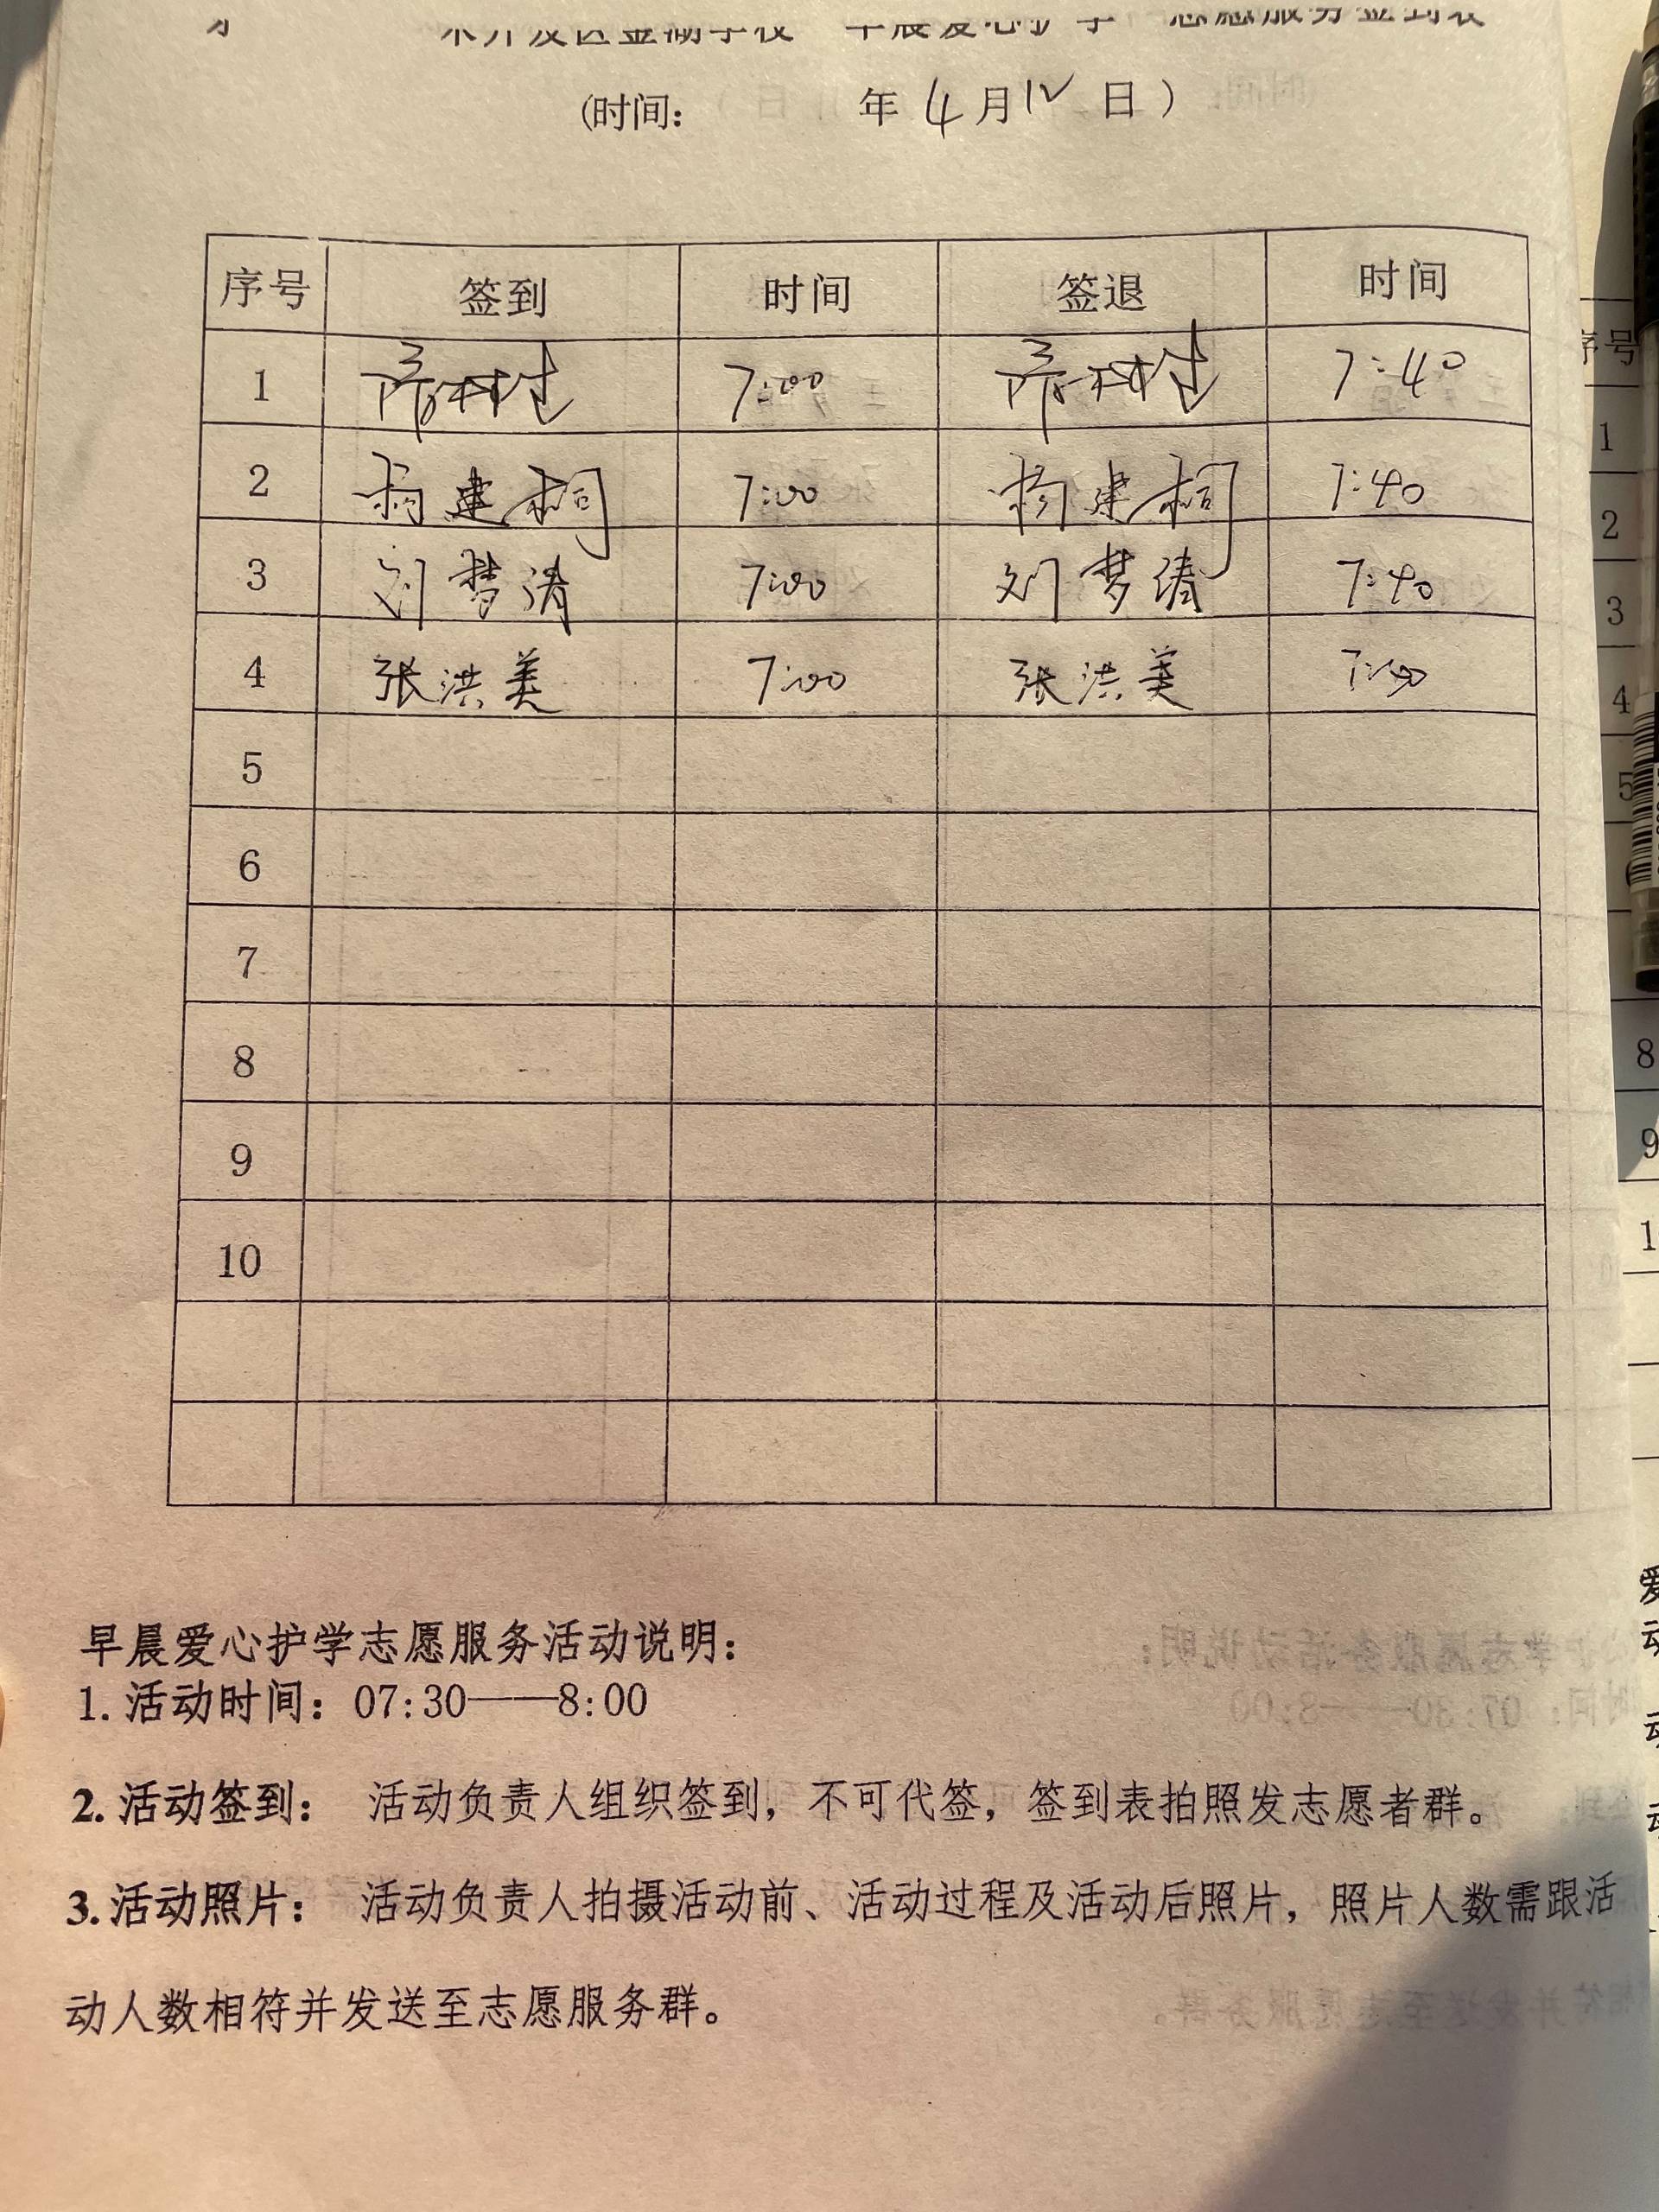 开发区金湖学校 早晨爱心护学 志愿服务签到表
(时间: 年 4 月 12 日)
序号 签到 时间 签退 时间
1 7:00 7:40
2 杨建桐 7:00 杨建桐 7:40
3 刘梦倩 7:00 刘梦倩 7:40
4 张洪美 7:00 张洪美 7:40
5
6
7
8
9
10
早晨爱心护学志愿服务活动说明:
1. 活动时间: 07:30——8:00
2. 活动签到: 活动负责人组织签到，不可代签，签到表拍照发志愿者群。
3. 活动照片: 活动负责人拍摄活动前、活动过程及活动后照片，照片人数需跟活
动人数相符并发送至志愿服务群。
序号
1
2
3
4
5
8
9
1